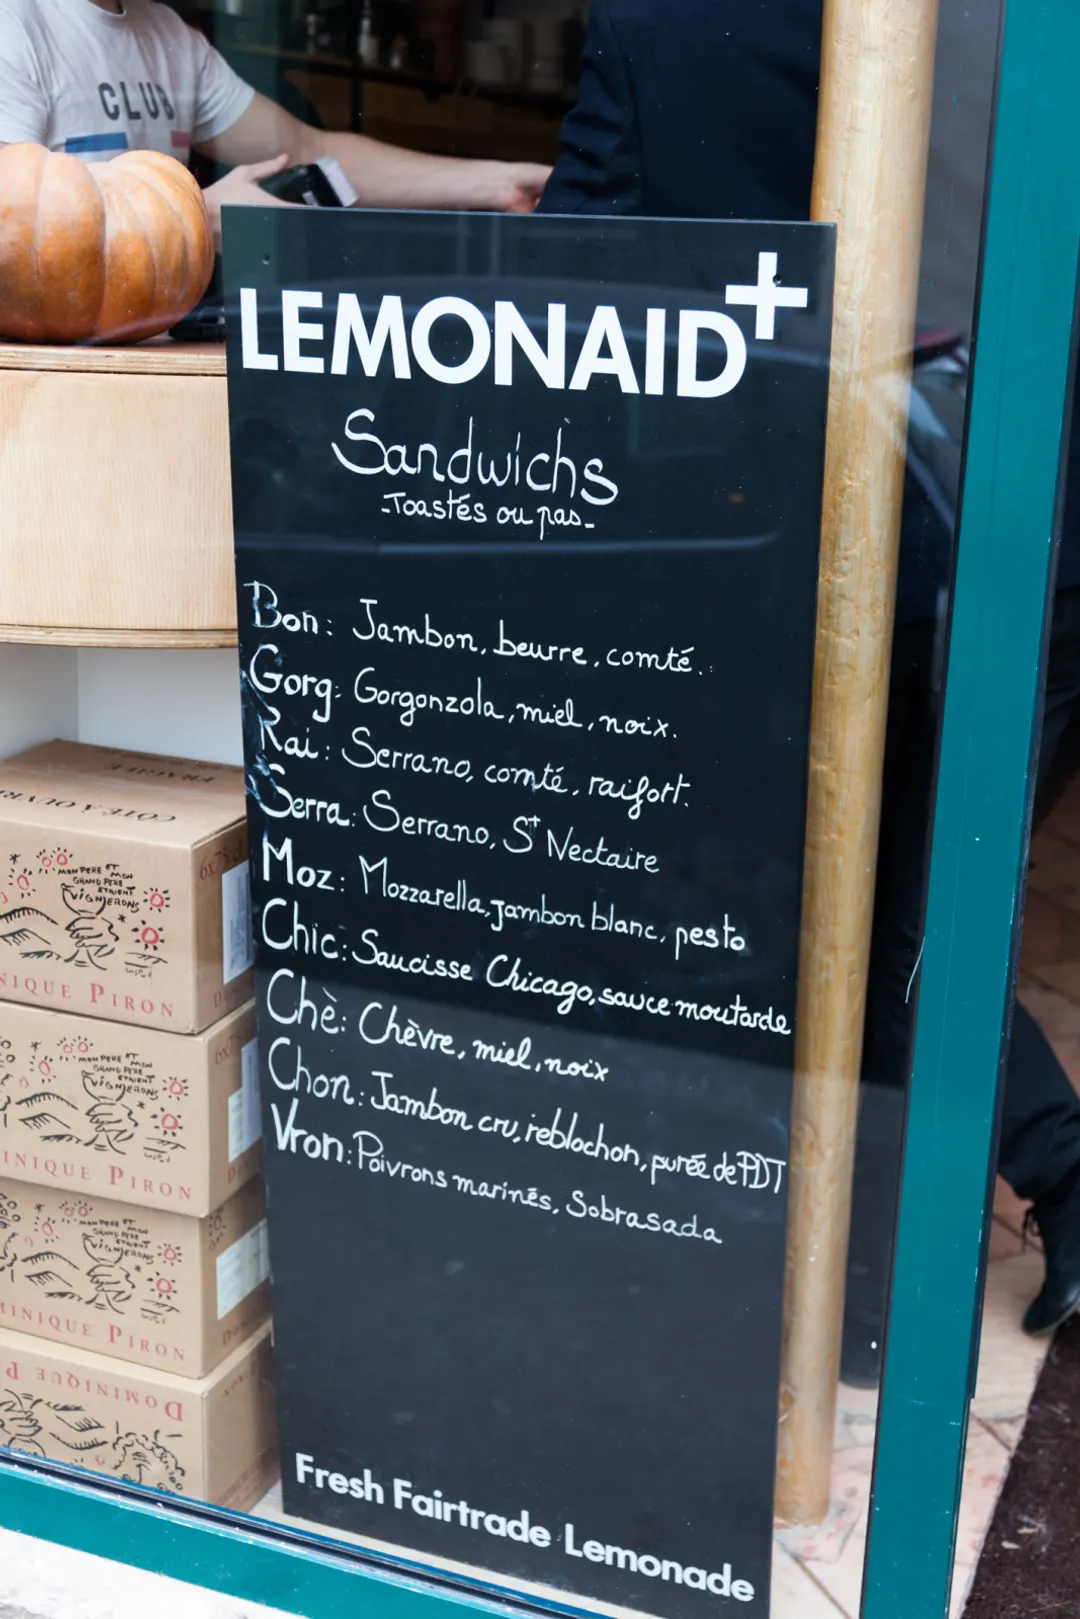 CLUB
LEMONAID+
Sandwichs
-Toastés ou pas-
Bon: Jambon, beurre, comté.
Gorg: Gorgonzola, miel, noix.
Rai: Serrano, comté, raifort.
Serra: Serrano, St Nectaire
Moz: Mozzarella, jambon blanc, pesto
Chic: Saucisse Chicago, sauce moutarde
Chè: Chèvre, miel, noix
Chon: Jambon cru, reblochon, purée de PDT
Vron: Poivrons marinés, Sobrasada
Fresh Fairtrade Lemonade
FRAGILE
6x75
MON PERE ET
GRAND PERE
ETAIENT
VIGNERONS
NIQUE PIRON
MON PERE ET MON
GRAND PERE
ETAIENT
VIGNERONS
INIQUE PIRON
MON PERE ET MON
GRAND PERE
ETAIENT
VIGNERONS
MINIQUE PIRON
DOMINIQUE P